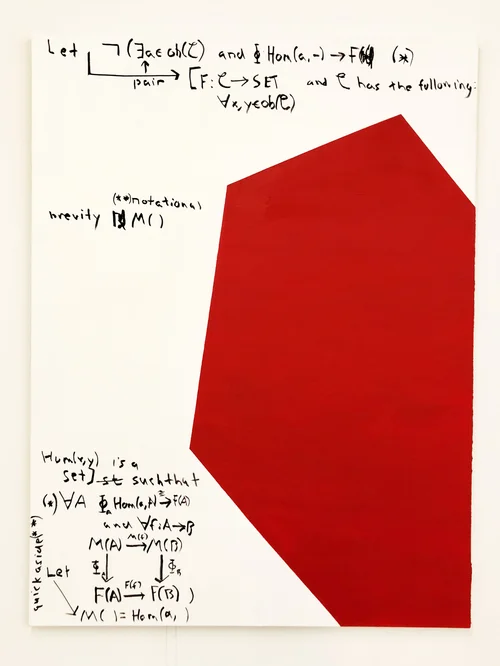 Let ¬(∃a∈ob(C) and Φ Hom(a,-)→F (*)
pair [F: C→SET and C has the following:
∀x,y∈ob(C)
(**)notational
brevity M( )
Hom(x,y) is a
set] st such that
(*) ∀A Φ_A Hom(a,A) ≅→ F(A)
and ∀f:A→B
M(A) M(f)→ M(B)
Φ_A ↓ ↓ Φ_B
F(A) F(f)→ F(B) )
quick aside(**)
Let
M( ) = Hom(a, )